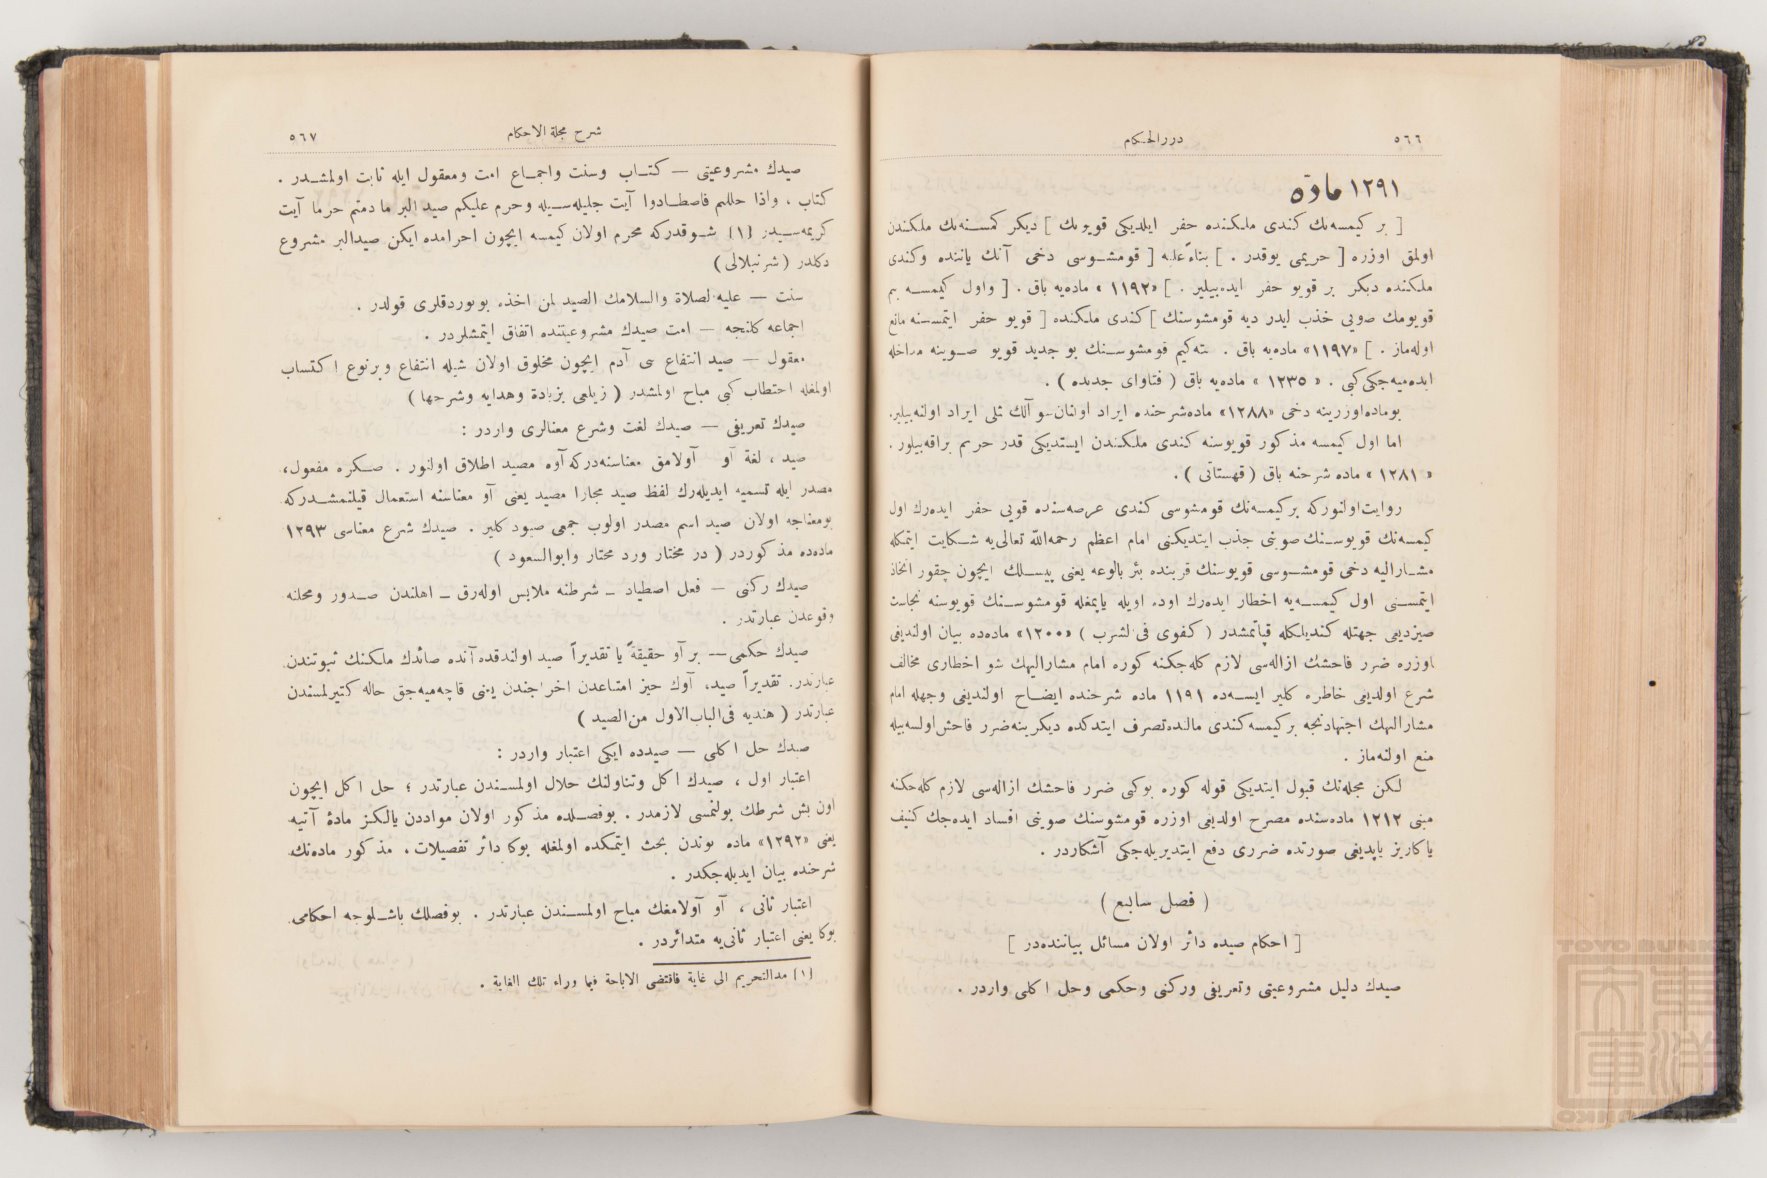 ٥٦٦
دررالحكام
١٢٩١ مادّه
[ بر كیمسەنك كندی ملكنده حفر ایلدیكی قویونك ] دیكر كمسنەنك ملكندن
اولمق اوزره [ حریمی یوقدر . ] بناءً علیه [ قومشوسی دخی آنك یاننده وكندی
ملكنده دیكر بر قویو حفر ایدەبیلیر . ] «١١٩٢» مادەیه باق . [ واول كیمسه بم
قویومك صویی خذب ایدر دیه قومشوسنك ] كندی ملكنده [ قویو حفر ایتمسنه مانع
اولەماز . ] «١١٩٧» مادەیه باق . نته‌كیم قومشوسنك بو جدید قویو صوینه مداخله
ایدەمیەجكی كبی . « ١٢٣٥ » مادەیه باق ( فتاوای جدیده ) .
بوماده‌اوزرینه دخی «١٢٨٨» ماده‌شرحنده ایراد اولنان‌سوآلك مثلی ایراد اولنەبیلیر.
اما اول كیمسه مذكور قویوسنه كندی ملكندن ایستدیكی قدر حریم براقەبیلور .
« ١٢٨١ » ماده شرحنه باق ( قهستانی ) .
روایت‌اولنوركه بركیمسەنك قومشوسی كندی عرصەسنده قویی حفر ایدەرك اول
كیمسەنك قویوسنك صوینی جذب ایتدیكنی امام اعظم رحمه‌اللّه تعالی‌یه شكایت ایتمكله
مشارالیه دخی قومشوسی قویوسنك قربنده بئر بالوعه یعنی پیسلك ایچون چقور اتخاذ
ایتمسنی اول كیمسەیه اخطار ایدەرك اوده اویله یاپمغله قومشوسنك قویوسنه نجاست
صیزدیغی جهتله كندیلكله قپاتمشدر ( كفوی فی‌الشرب ) «١٢٠٠» مادەده بیان اولندیغی
اوزره ضرر فاحشك ازالەسی لازم كلەجكنه كوره امام مشارالیهك شو اخطاری مخالف
شرع اولدیغی خاطره كلیر ایسەده ١١٩١ ماده شرحنده ایضاح اولندیغی وجهله امام
مشارالیهك اجتهادنجه بركیمسه‌كندی مالنده‌تصرف ایتدكده دیكرینه‌ضرر فاحش‌اولسه‌بیله
منع اولنەماز .
لكن مجلەنك قبول ایتدیكی قوله كوره بوكبی ضرر فاحشك ازالەسی لازم كلەجكنه
مبنی ١٢١٢ مادەسنده مصرح اولدیغی اوزره قومشوسنك صوینی افساد ایدەجك كنیف
یاكاریز یاپدیغی صورتده ضرری دفع ایتدیریلەجكی آشكاردر .
( فصل سابع )
[ احكام صیده دائر اولان مسائل بیاننده‌در ]
صیدك دلیل مشروعیتی وتعریفی وركنی وحكمی وحل اكلی واردر .
شرح مجلة الاحكام
٥٦٧
صیدك مشروعیتی — كتاب وسنت واجماع امت ومعقول ایله ثابت اولمشدر .
كتاب ، واذا حللتم فاصطادوا آیت جلیلەسیله وحرم علیكم صید البر مادمتم حرما آیت
كریمەسیدر [١] شوقدركه محرم اولان كیمسه ایچون احرامده ایكن صیدالبر مشروع
دكلدر ( شرنبلالی )
سنت — علیه‌لصلاة والسلامك الصید لمن اخذه بویوردقلری قولدر .
اجماعه كلنجه — امت صیدك مشروعیتنده اتفاق ایتمشلردر .
معقول — صید انتفاع سی آدم ایچون مخلوق اولان شیله انتفاع وبرنوع اكتساب
اولمغله احتطاب كبی مباح اولمشدر ( زیلعی بزیادة وهدایه وشرحها )
صیدك تعریفی — صیدك لغت وشرع معنالری واردر :
صید ، لغة آو آولامق معناسنەدركه آوه مصید اطلاق اولنور . صكره مفعول،
مصدر ایله تسمیه ایدیلەرك لفظ صید مجازا مصید یعنی آو معناسنه استعمال قیلنمشدركه
بومعناجه اولان صید اسم مصدر اولوب جمعی صیود كلیر . صیدك شرع معناسی ١٢٩٣
مادەده مذكوردر ( در مختار ورد محتار وابوالسعود )
صیدك ركنی — فعل اصطیاد – شرطنه ملابس اولەرق – اهلندن صدور ومحلنه
وقوعدن عبارتدر .
صیدك حكمی — بر آو حقیقةً یا تقدیراً صید اولندقده آنده صائدك ملكنك ثبوتندن
عبارتدر. تقدیراً صید، آوك حیز امتناعدن اخراجندن یعنی قاچەمیەجق حاله كتیرلمسندن
عبارتدر ( هندیه فی‌الباب‌الاول من‌الصید )
صیدك حل اكلی — صیدده ایكی اعتبار واردر :
اعتبار اول ، صیدك اكل وتناولنك حلال اولمسندن عبارتدر ؛ حل اكل ایچون
اون بش شرطك بولنمسی لازمدر . بوفصلده مذكور اولان مواددن یالكز مادۀ آتیه
یعنی «١٢٩٢» ماده بوندن بحث ایتمكده اولمغله بوكا دائر تفصیلات، مذكور مادەنك
شرحنده بیان ایدیلەجكدر .
اعتبار ثانی ، آو آولامغك مباح اولمسندن عبارتدر . بوفصلك باشلوجه احكامی
بوكا یعنی اعتبار ثانی‌یه متدائردر .
[١] مدالتحریم الی غایة فاقتضی الاباحة فیما وراء تلك الغایة .
TOYO BUNKO